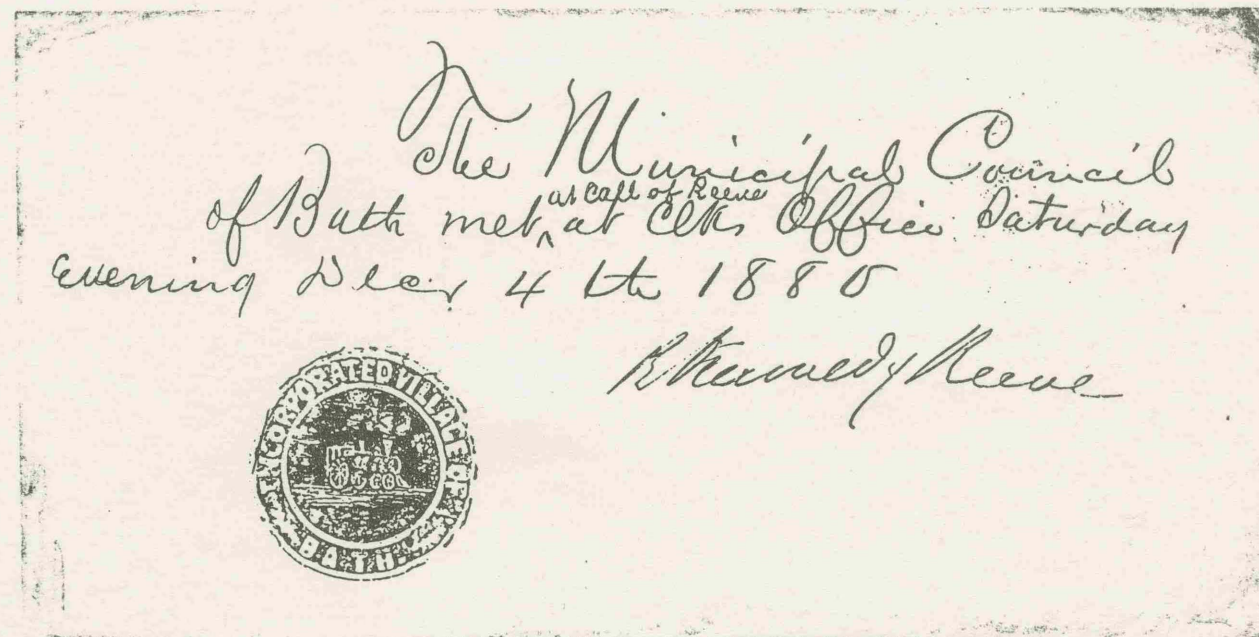 The Municipal Council
of Bath met at call of Reeve at Clks Office Saturday
Evening Decr 4 th 1880
R Kennedy Reeve
INCORPORATED VILLAGE OF
BATH.